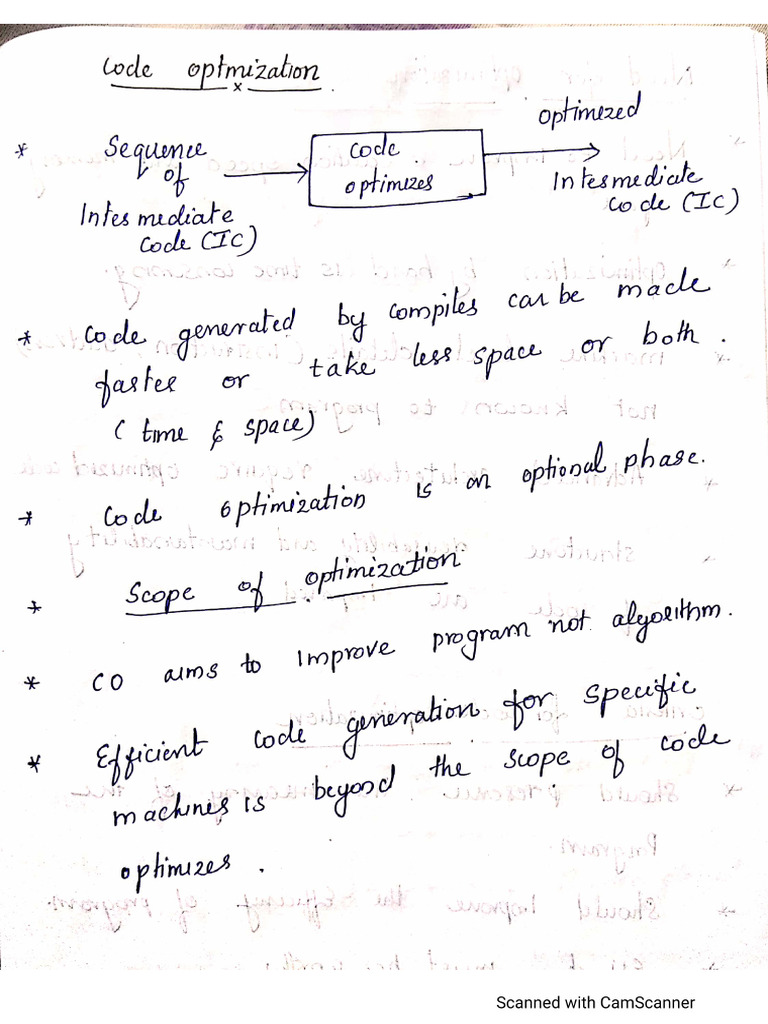 Code optmization
* Sequence of Intermediate code (IC)
code optimizer
optimized Intermediate code (IC)
* code generated by compiler can be made
faster or take less space or both.
(time & space)
* Code optimization is an optional phase.
* Scope of optimization
* CO aims to improve program not algorithm.
* Efficient code generation for specific
machines is beyond the scope of code
optimizer.
Scanned with CamScanner